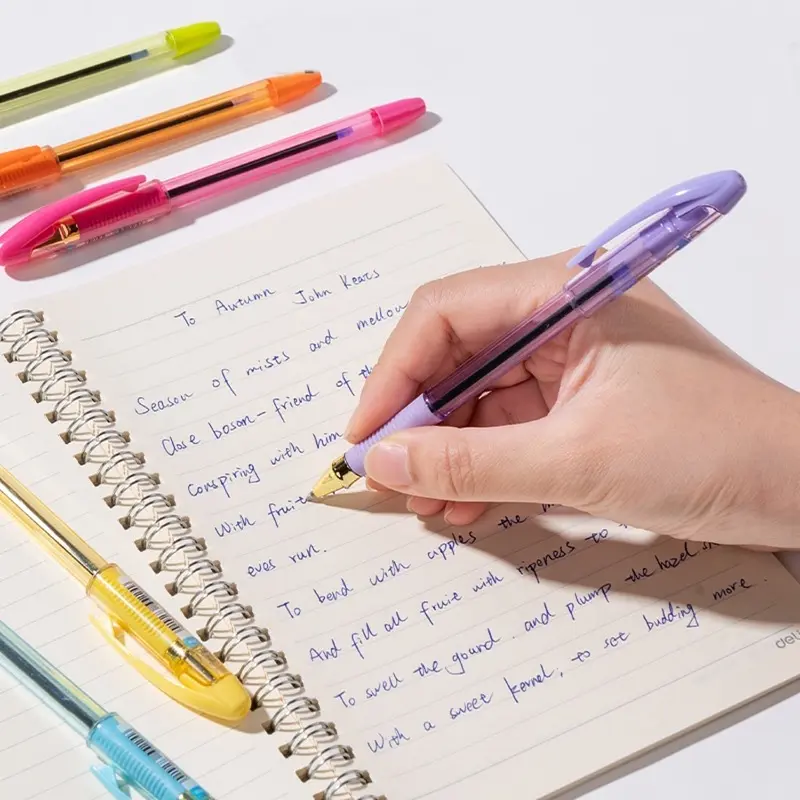 To Autumn John Keats
Season of mists and mellow
Close boson-friend of th
Conspiring with him
With fruit
eves run.
To bend with apples the
And fill all fruit with riponess to
To swell the gourd. and plump the hazel sh
With a sweet kernel; to set budding more.
deli